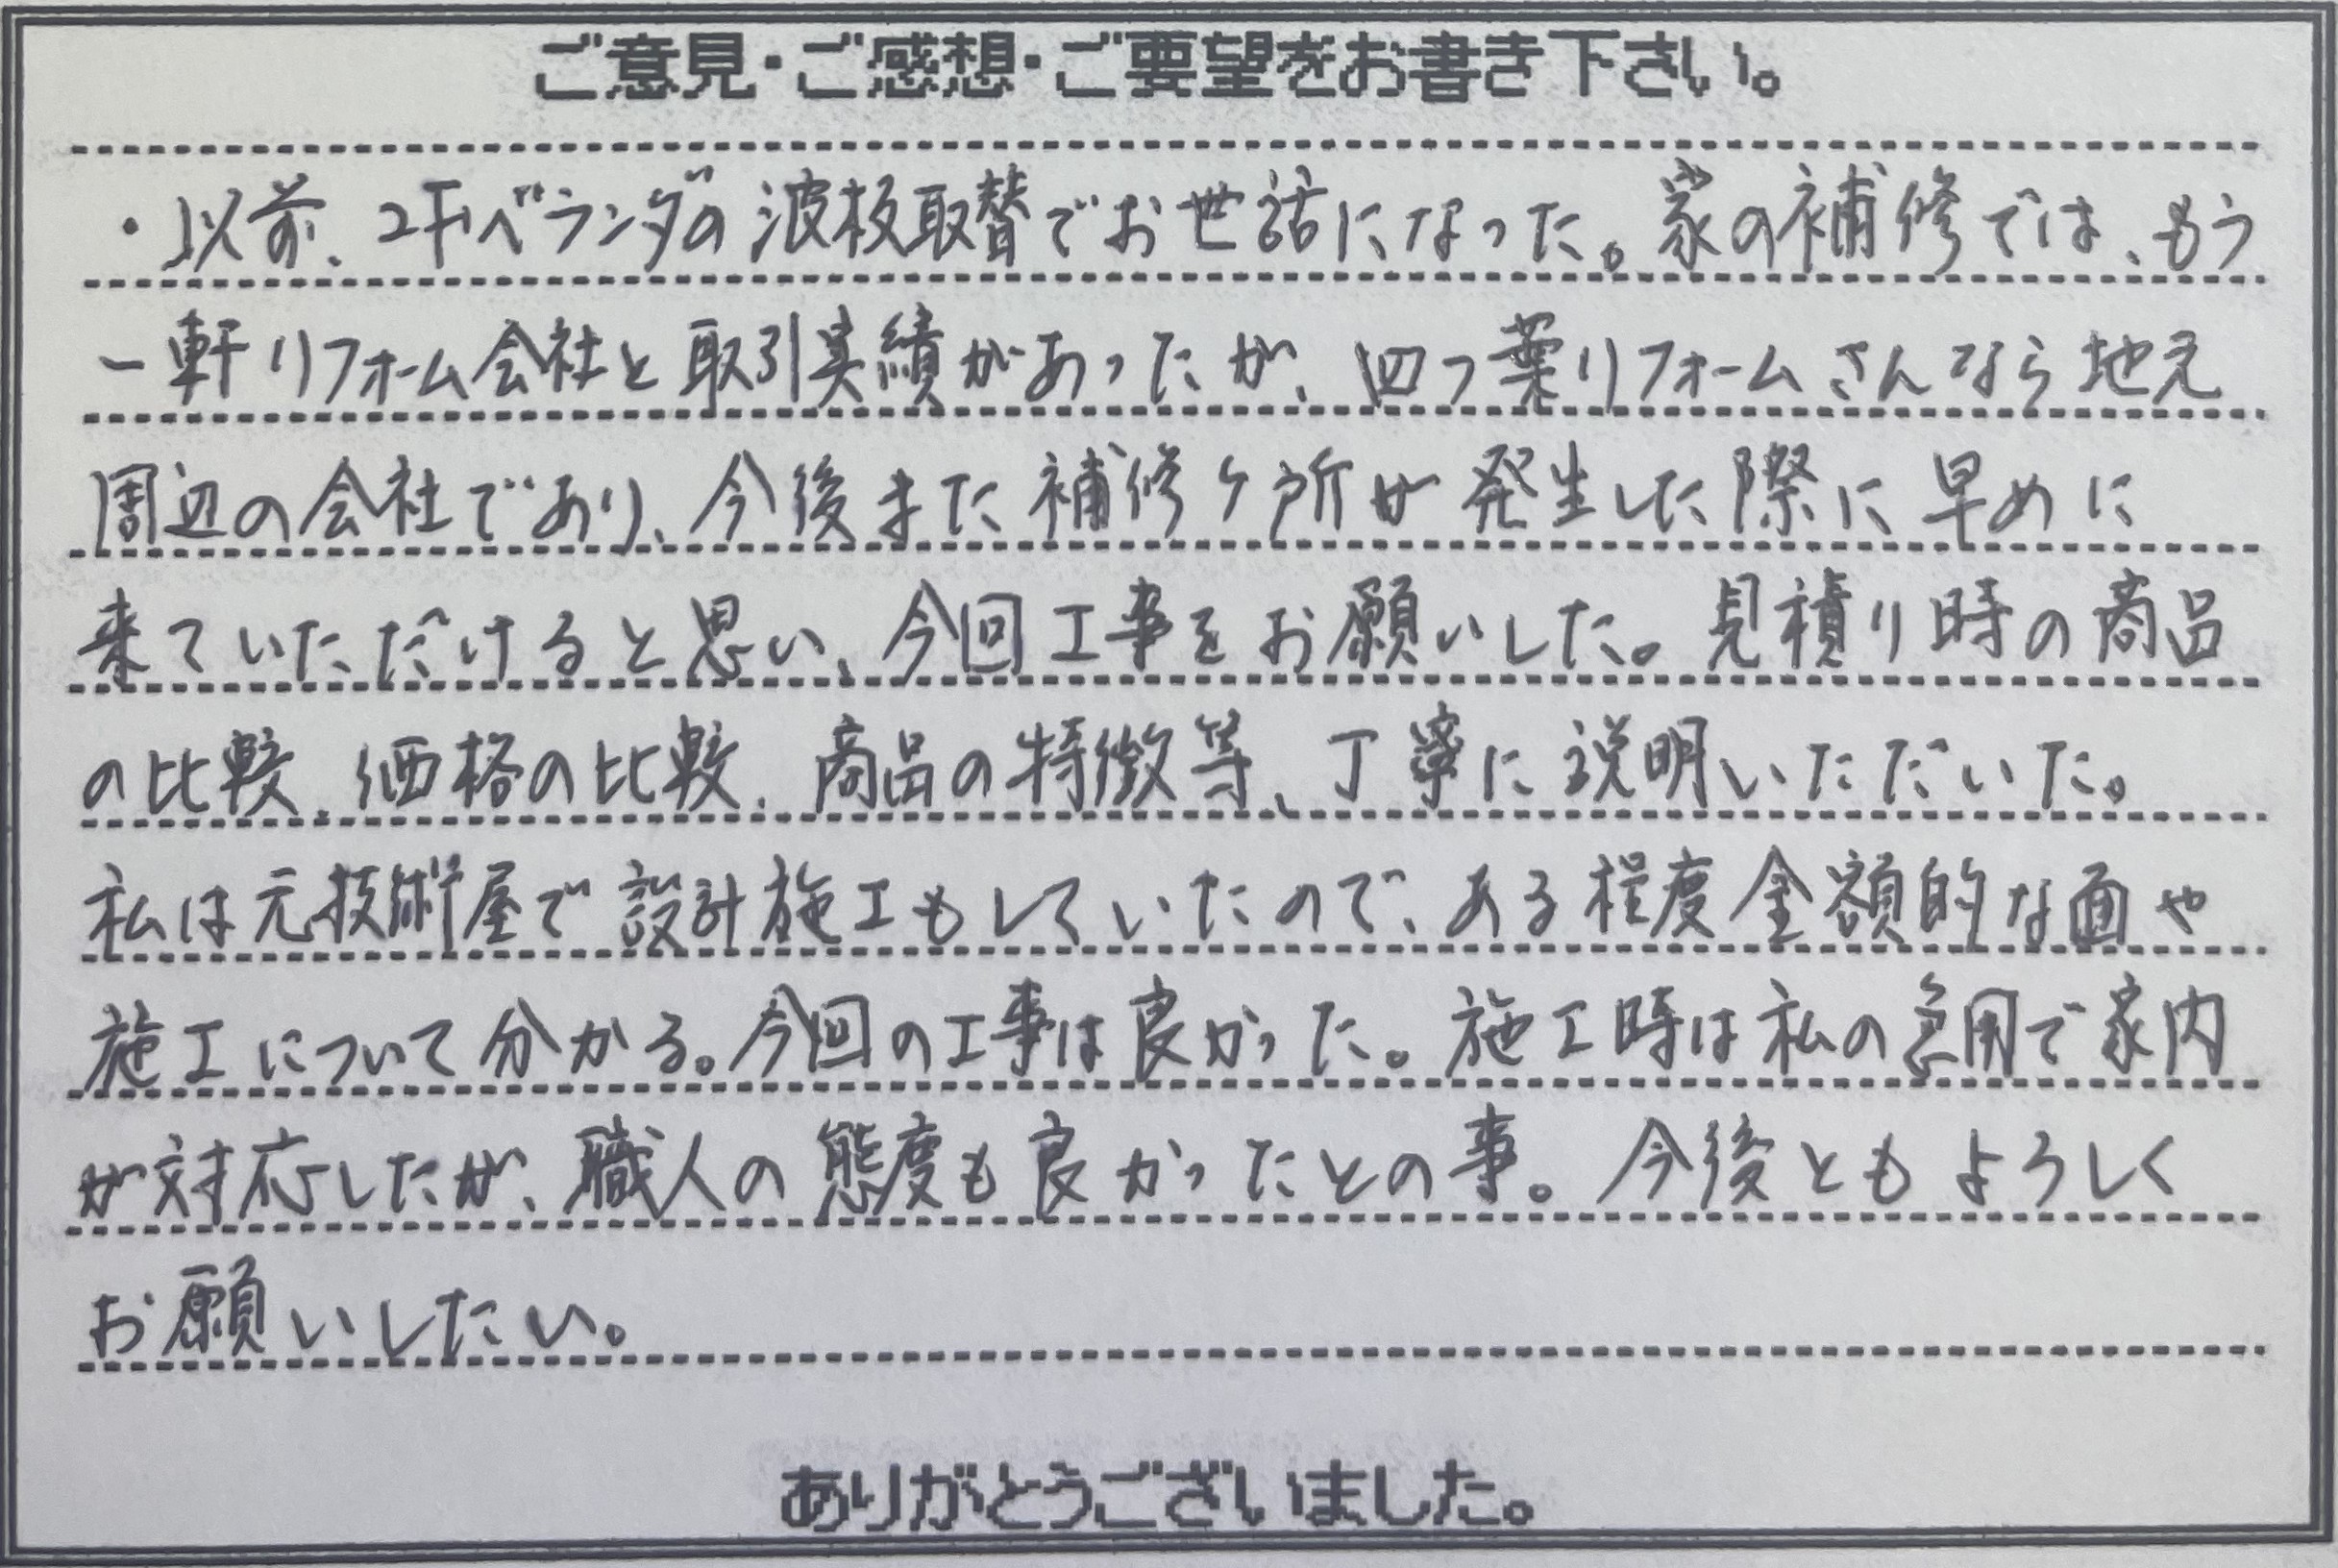 ご意見・ご感想・ご要望をお書き下さい。
・以前、2Fベランダの波板取替でお世話になった。家の補修では、もう
一軒リフォーム会社と取引実績があったが、四つ葉リフォームさんなら地元
周辺の会社であり、今後また補修ケ所が発生した際に早めに
来ていただけると思い、今回工事をお願いした。見積り時の商品
の比較、価格の比較、商品の特徴等、丁寧に説明いただいた。
私は元技術屋で設計施工もしていたので、ある程度金額的な面や
施工について分かる。今回の工事は良かった。施工時は私の急用で家内
が対応したが、職人の態度も良かったとの事。今後ともよろしく
お願いしたい。
ありがとうございました。